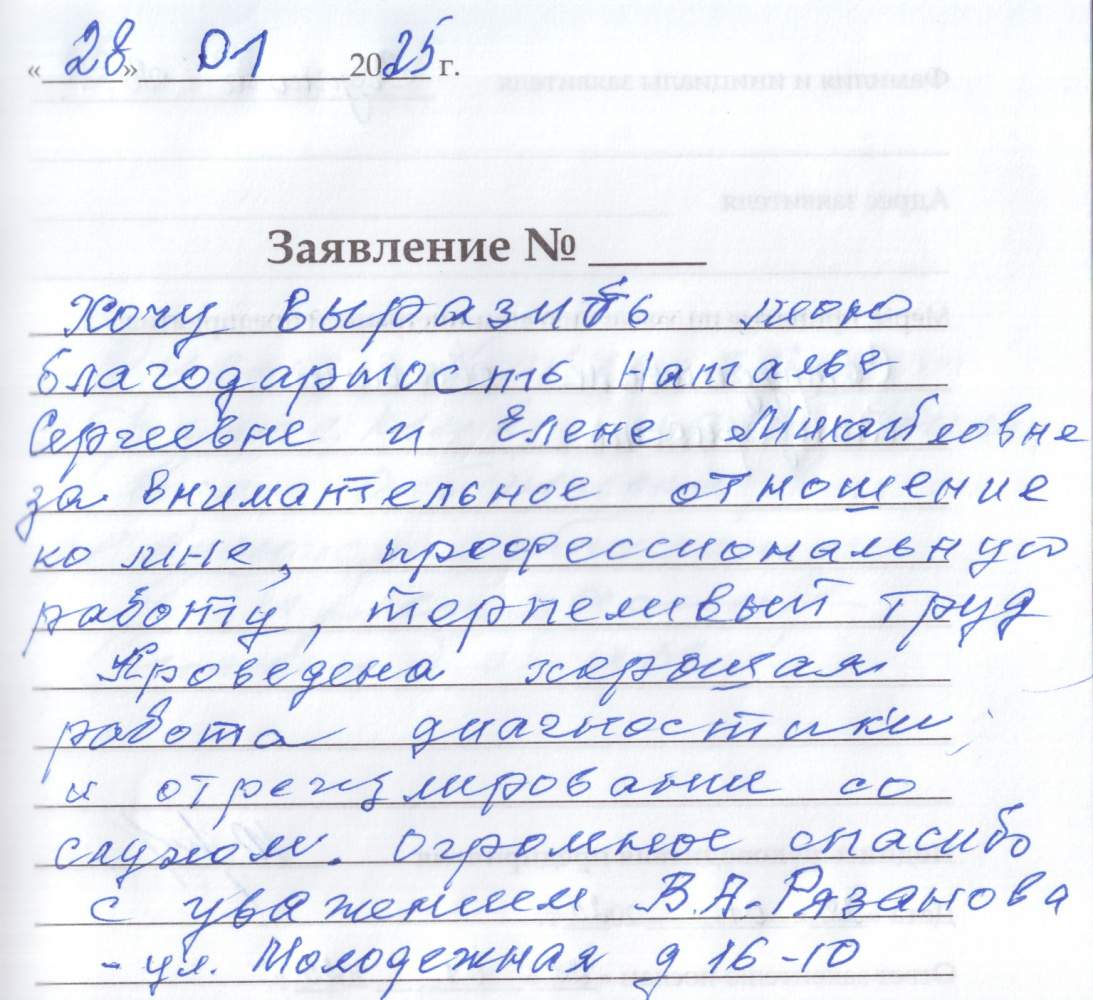 « 28 » 01 2025 г.
Заявление № ____
Хочу выразить
благодарность Наталье
Сергеевне и Елене Михайловне
за внимательное отношение
ко мне, профессиональную
работу, терпеливый труд
Проведена хорошая
работа диагностики
и отрегулировании со
слухом. Огромное спасибо
с уважением В.А. Рязанова
- ул. Молодежная д 16-10